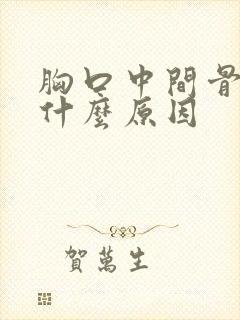 胸口中間骨
什麼原因
賀萬生